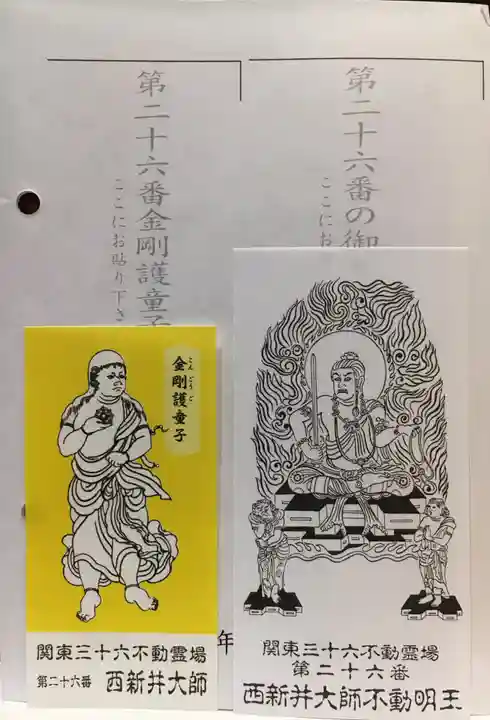 第二十六番の御
ここにお
第二十六番金剛護童子
ここにお貼り下さ
金剛護童子
こんごうご
関東三十六不動霊場
第二十六番 西新井大師
年
関東三十六不動霊場
第二十六番
西新井大師不動明王